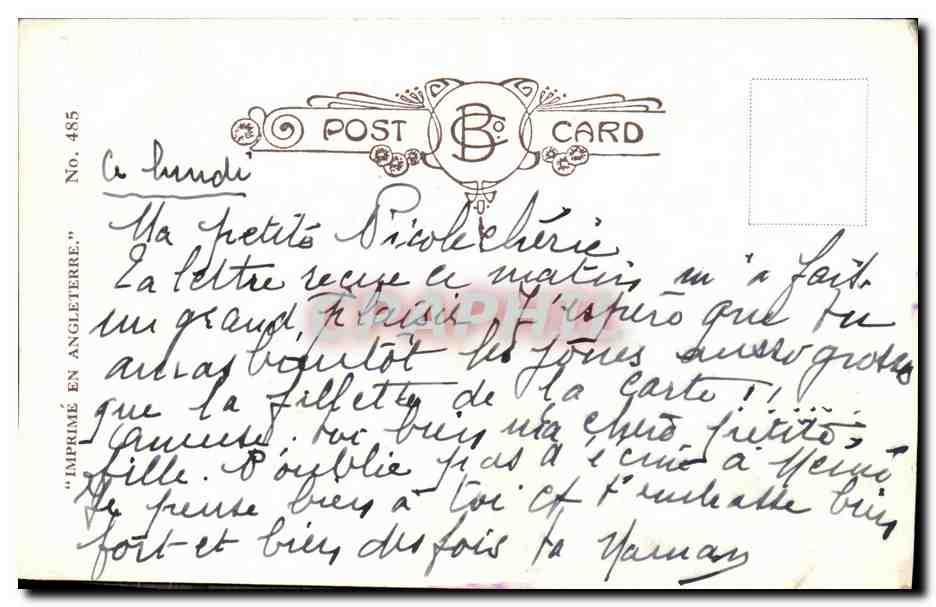 POST CARD
B Co
"IMPRIMÉ EN ANGLETERRE." No. 485
Ce lundi
Ma petite Nicole chérie
Ta lettre reçue ce matin m'a fait
un grand plaisir. J'espère que tu
auras bientôt les joues aussi grosses
que la fillette de la carte !!
Amuse-toi bien ma chère petite
fille. N'oublie pas d'écrire à Mémé
Je pense bien à toi et t'embrasse bien
fort et bien des fois ta Maman